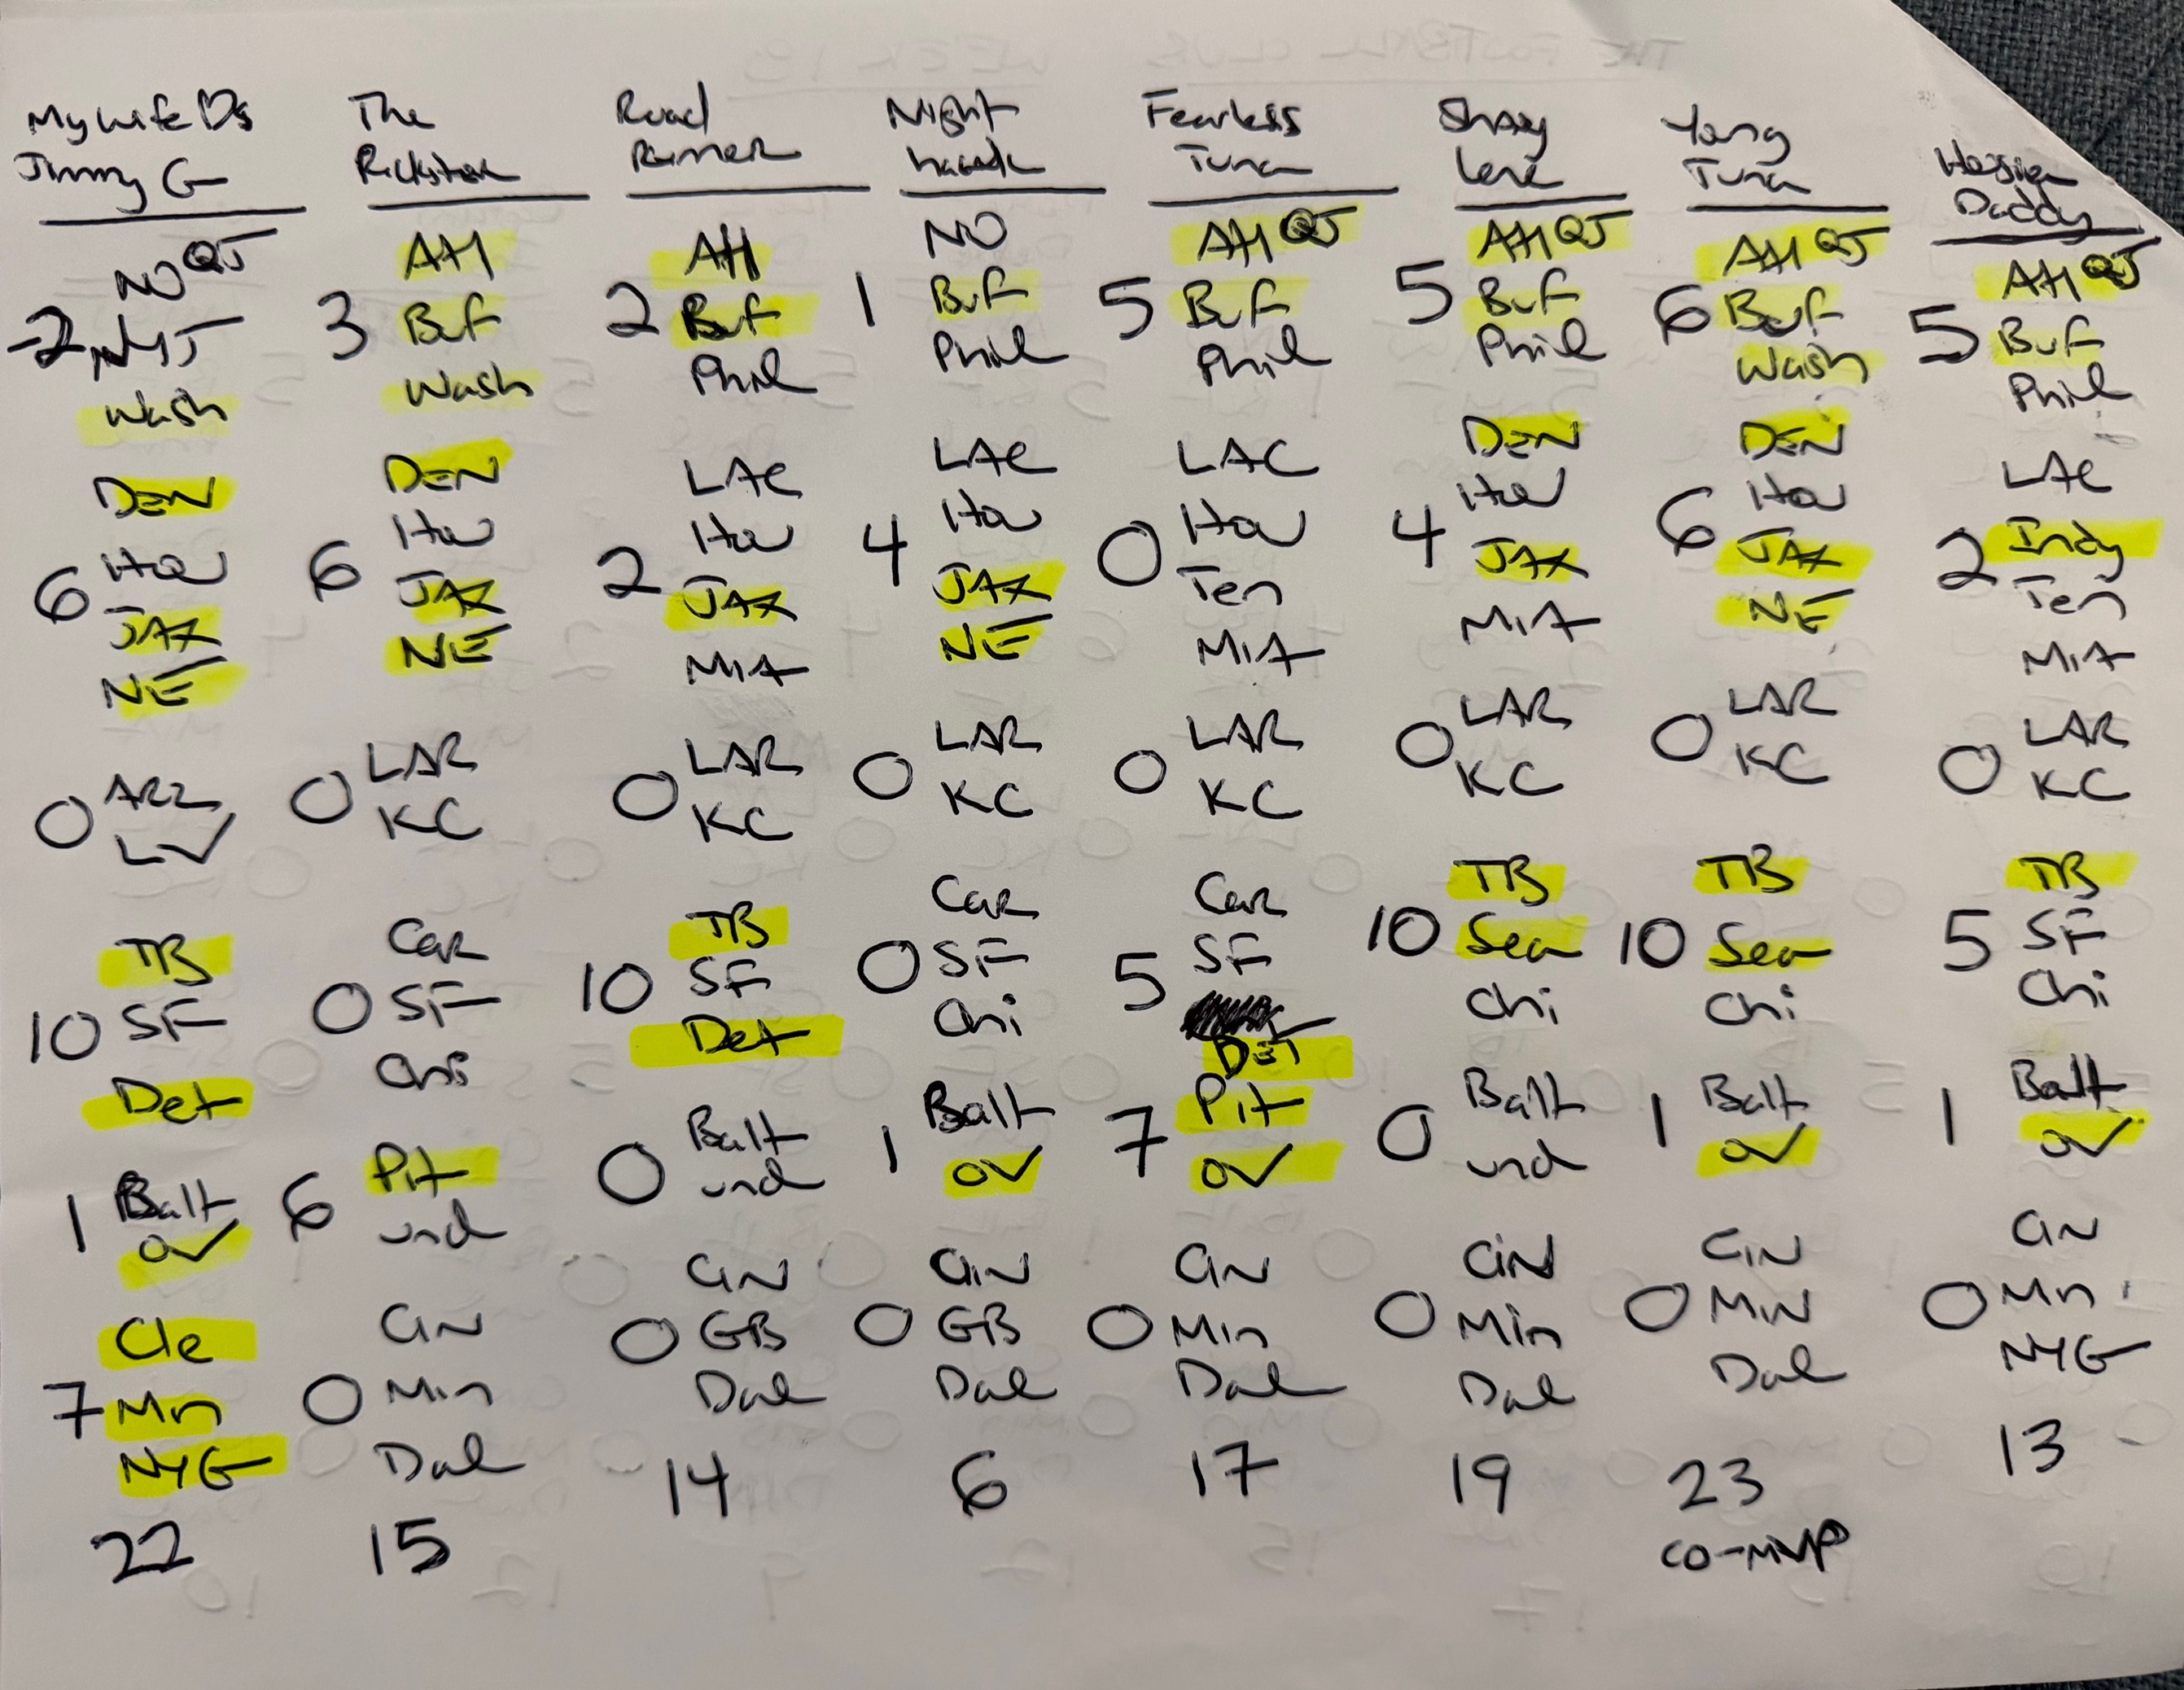 My Wife Ds
Jimmy G
NO QJ
-2 NYJ
Wash
DEN
Hou
6
JAX
NE
0 ARZ
LV
TB
10 SF
Det
1 Balt
OV
Cle
7 Min
NYG
22
The
Rickster
Atl
3 Buf
Wash
DEN
Hou
6
JAX
NE
0 LAR
KC
Car
0 SF
Chi
6 Pit
und
Cin
0 Min
Dal
15
Road
Runner
Atl
2 Buf
Phil
LAC
Hou
2
JAX
MIA
0 LAR
KC
TB
10 SF
Det
0 Balt
und
CIN
0 GB
Dal
14
Night
hawk
NO
1 Buf
Phil
LAC
Hou
4
JAX
NE
0 LAR
KC
Car
0 SF
Chi
1 Balt
OV
CIN
0 GB
Dal
6
Fearless
Tuna
Atl QJ
5 Buf
Phil
LAC
Hou
0
Ten
MIA
0 LAR
KC
Car
5 SF
Det
7 Pit
OV
CIN
0 Min
Dal
17
Shay
Lene
Atl QJ
5 Buf
Phil
DEN
Hou
4
JAX
MIA
0 LAR
KC
TB
10 Sea
Chi
0 Balt
und
CIN
0 Min
Dal
19
Yong
Tuna
Atl QJ
6 Buf
Wash
DEN
6 Hou
JAX
NE
0 LAR
KC
TB
10 Sea
Chi
1 Balt
OV
CIN
0 MIN
Dal
23
CO-MVP
Daddy
Atl QJ
5 Buf
Phil
LAC
2 Indy
Ten
MIA
0 LAR
KC
TB
5 SF
Chi
1 Balt
OV
CIN
0 Min
NYG
13